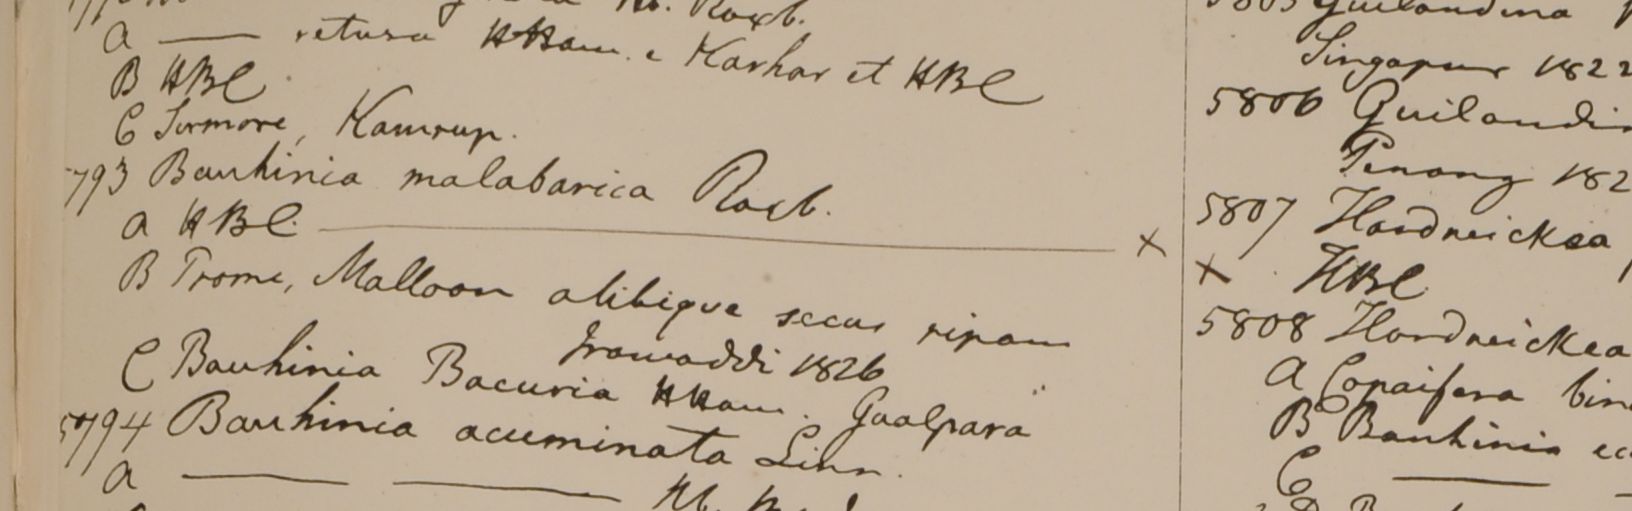 Roxb.
A —— retusa HHam. e Karhar et HBC
B HBC
C Sirmore, Kamrup.
793 Bauhinia malabarica Roxb.
A HBC. —— x
B Prome, Malloon alibique secus ripam
Irawaddi 1826
C Bauhinia Bacuria HHam. Goalpara
5794 Bauhinia acuminata Linn.
A —— ——
5805 Guilandina
Singapur 1822
5806 Guilandin
Penang 182
5807 Hardwickea
x HBC
5808 Hardwickea
A Copaifera bin
B Bauhinia
C ——